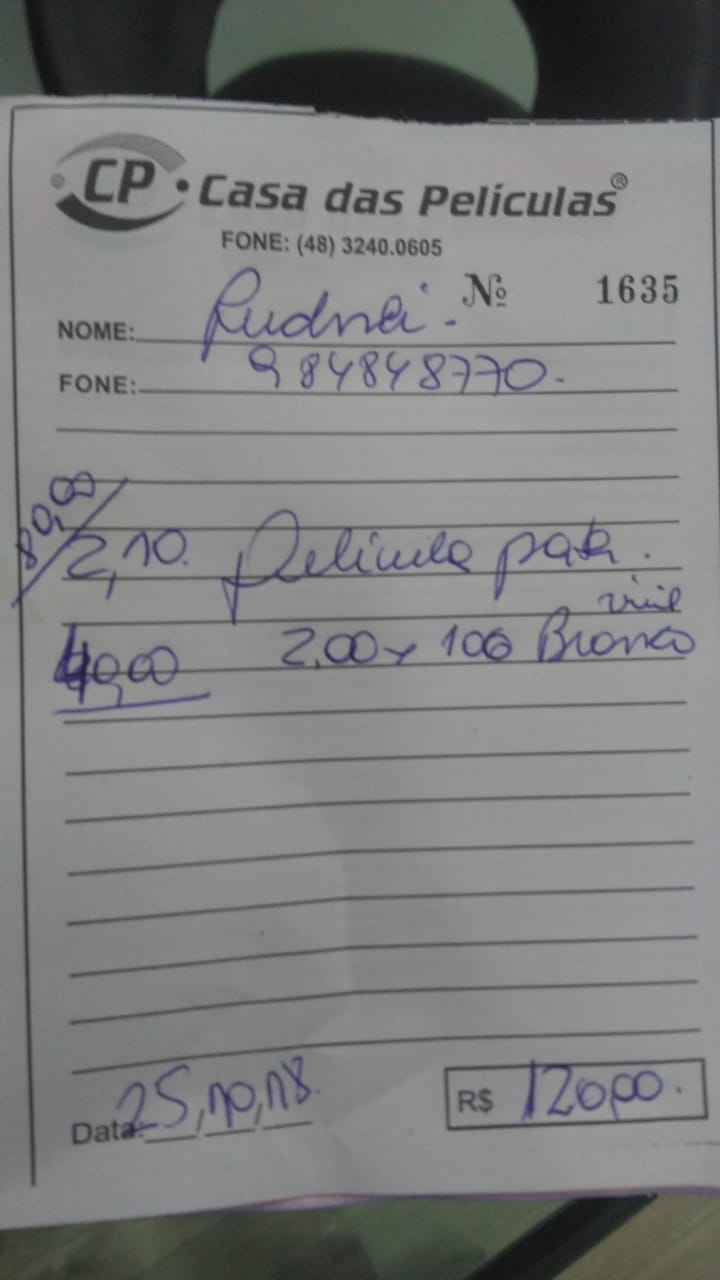 CP • Casa das Películas®
FONE: (48) 3240.0605
Nº 1635
NOME: Rudnei.
FONE: 984848770.
80,00
2,10. Película prata.
vinil
40,00 2,00 x 106 Branco
Data: 25,10,18. R$ 12000.